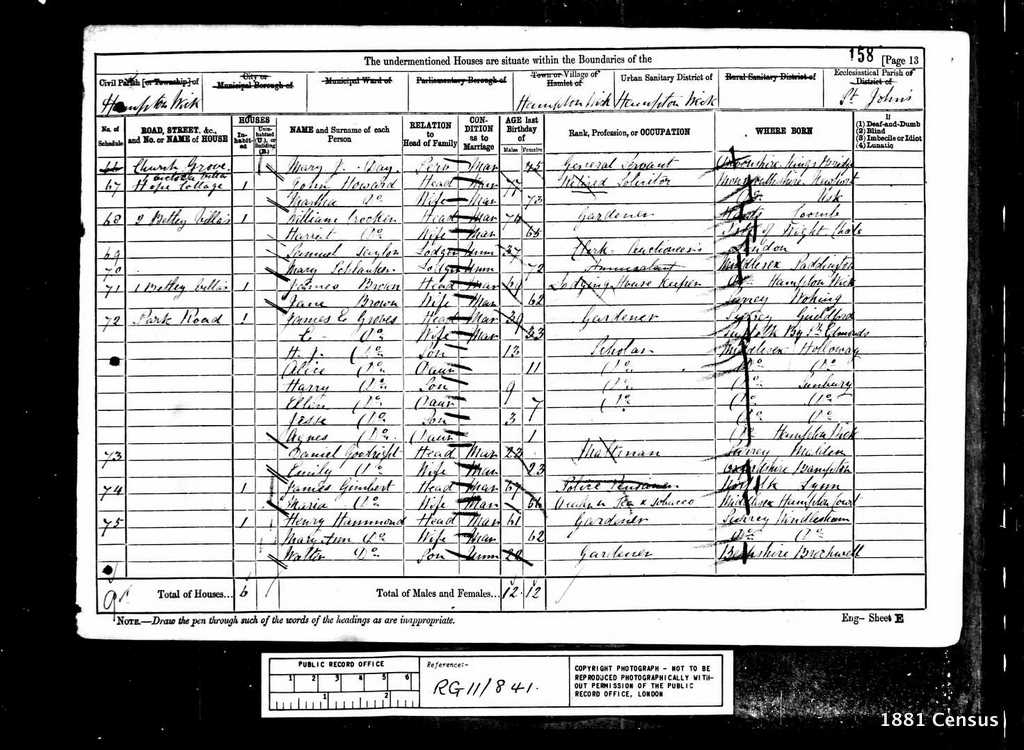 The undermentioned Houses are situate within the Boundaries of the
158 [Page 13
Civil Parish [or Township] of
City or Municipal Borough of
Municipal Ward of
Parliamentary Borough of
Town or Village of Hamlet of
Urban Sanitary District of
Rural Sanitary District of
Ecclesiastical Parish of District of
Hampton Wick
Hampton Wick
Hampton Wick
St Johns
No. of Schedule
ROAD, STREET, &c., and No. or NAME of HOUSE
HOUSES
Inhabited
Uninhabited (U.), or Building (B.)
NAME and Surname of each Person
RELATION to Head of Family
CONDITION as to Marriage
AGE last Birthday of
Males
Females
Rank, Profession, or OCCUPATION
WHERE BORN
If
(1) Deaf-and-Dumb
(2) Blind
(3) Imbecile or Idiot
(4) Lunatic
66 Church Grove Mary Serv Mar 45 General Servant
67 Hope Cottage 1 John Howard Head Mar 77 Retired Solicitor Monmouthshire Newport
Martha Do Wife Mar 73 Do Usk
68 2 Betley Villas 1 William Head Mar 70 Gardener Coombe
Harriet Do Wife Mar 65 Isle of Wight Chale
69 Samuel Lodger Unm 37 Clerk London
70 Mary Lodger Unm 72 Annuitant Middlesex Paddington
71 1 Betley Villas 1 James Brown Head Mar Lodging House Keeper Do Hampton Wick
Jane Brown Wife Mar 62 Surrey Woking
72 Park Road 1 James E Groves Head Mar 39 Gardener Surrey Guildford
Do Wife Mar 33 Suffolk Bury St Edmunds
H. J. Do Son 13 Scholar Middlesex Holloway
Alice Do Daur 11 Do Do Do
Harry Do Son 9 Do Do Sunbury
Ellen Do Daur 7 Do Do Do
Jesse Do Son 3 Do Do
Agnes Do Daur 1 Do Hampton Wick
73 Daniel Head Mar 22 Surrey Malden
Emily Do Wife Mar 23 Oxfordshire Bampton
74 1 James Head Mar 67 Police Pensioner Norfolk Lynn
Maria Do Wife Mar 66 Tea & Tobacco Middlesex Hampton Court
75 1 Henry Hammond Head Mar 61 Gardener Surrey
Mary Ann Do Wife Mar 62 Do Do
Walter Do Son Unm 22 Gardener Berkshire
Total of Houses... 6
Total of Males and Females... 12 12
NOTE.—Draw the pen through such of the words of the headings as are inappropriate.
Eng- Sheet E
PUBLIC RECORD OFFICE
1 2 3 4 5 6
1 2
Reference:-
RG 11/841.
COPYRIGHT PHOTOGRAPH - NOT TO BE
REPRODUCED PHOTOGRAPHICALLY WITH-
OUT PERMISSION OF THE PUBLIC
RECORD OFFICE, LONDON
1881 Census